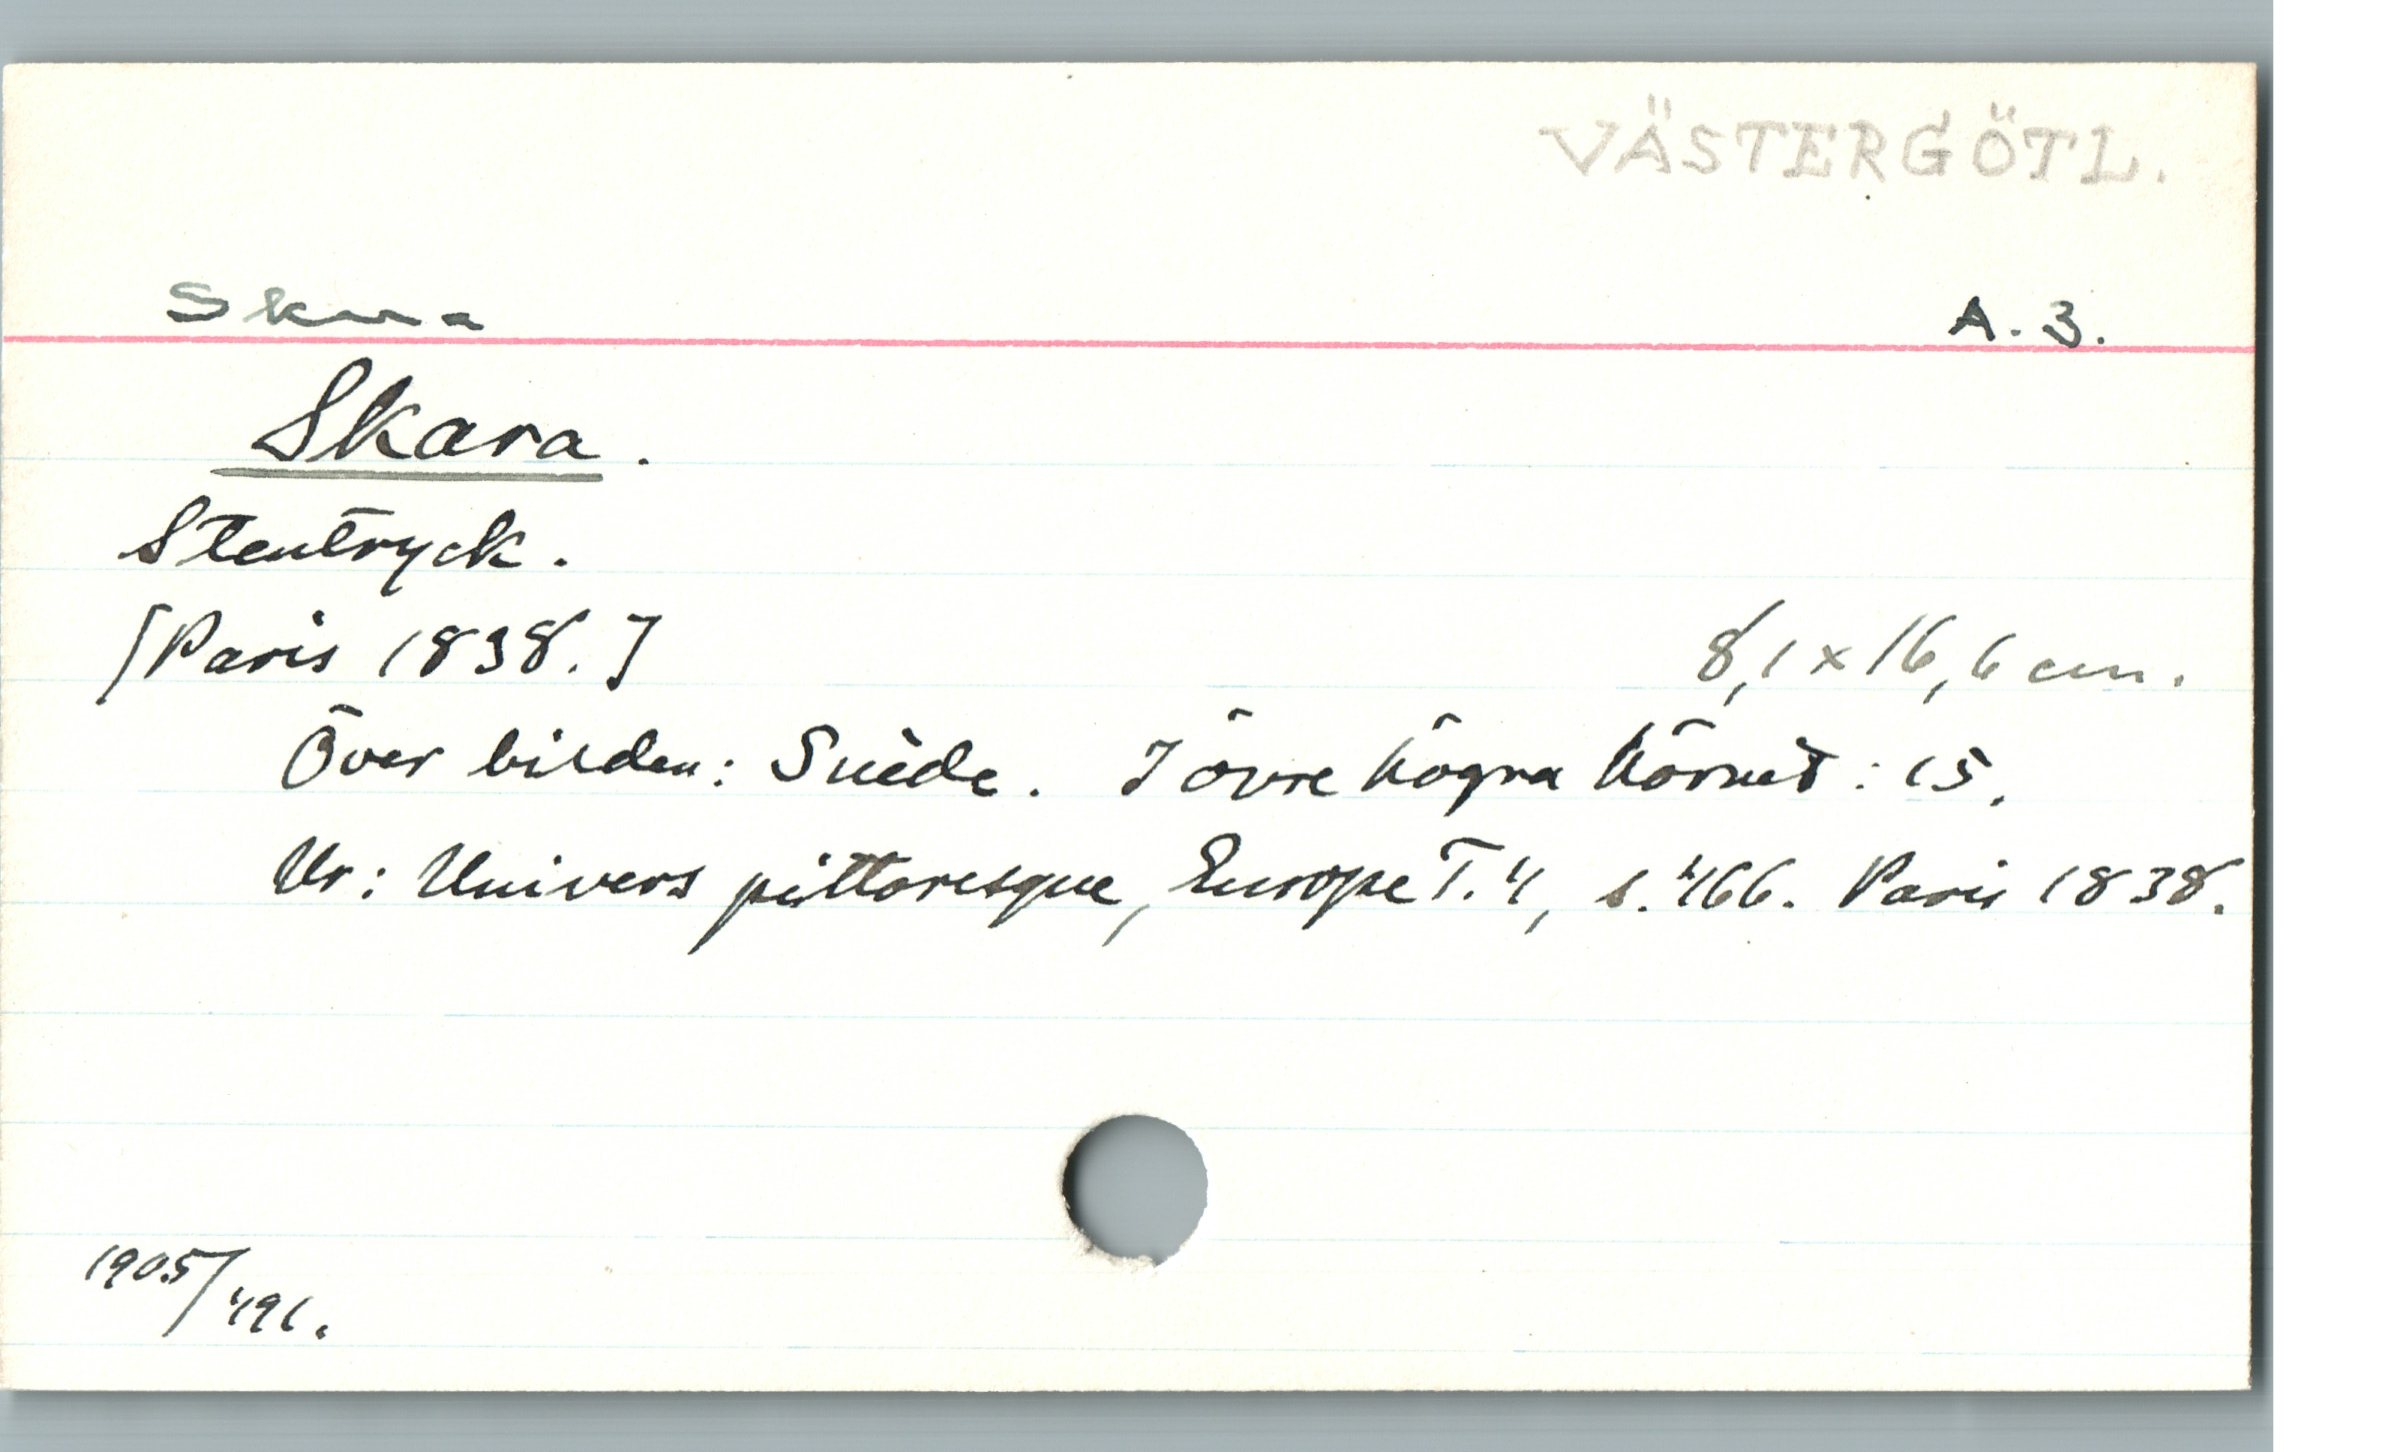 VÄSTERGÖTL.
Skara A. 3.
Skara.
Stentryck.
[Paris 1838.] 8,1 x 16,6 cm.
Över bilden: Suède. I övre högra hörnet: 15.
Ur: Univers pittoresque, Europe T. 4, s. 466. Paris 1838.
1905/491.